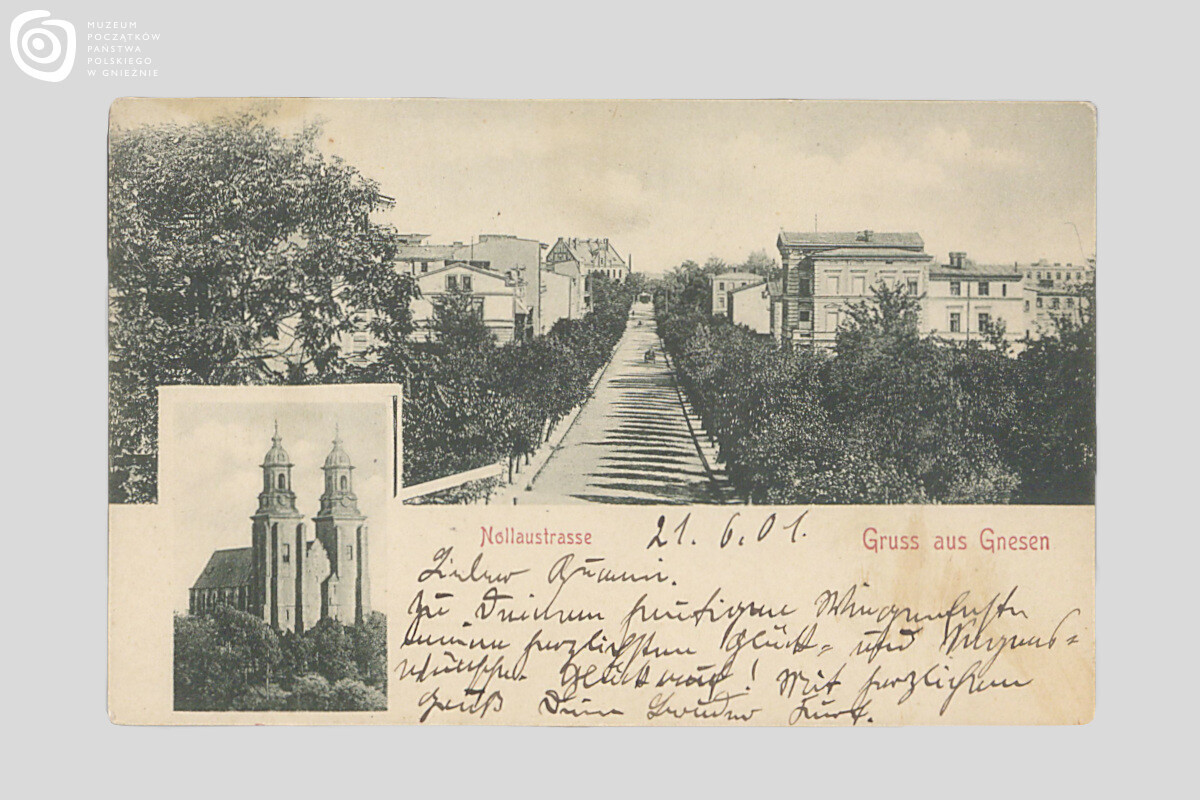 MUZEUM
POCZĄTKÓW
PAŃSTWA
POLSKIEGO
W GNIEŹNIE
Nollaustrasse
21. 6. 01.
Gruss aus Gnesen
Lieber
Zu Deinem heutigen Wiegenfeste
meine herzlichsten Glück- und Segens-
wünsche. Glück auf! Mit herzlichem
Gruß Dein Bruder